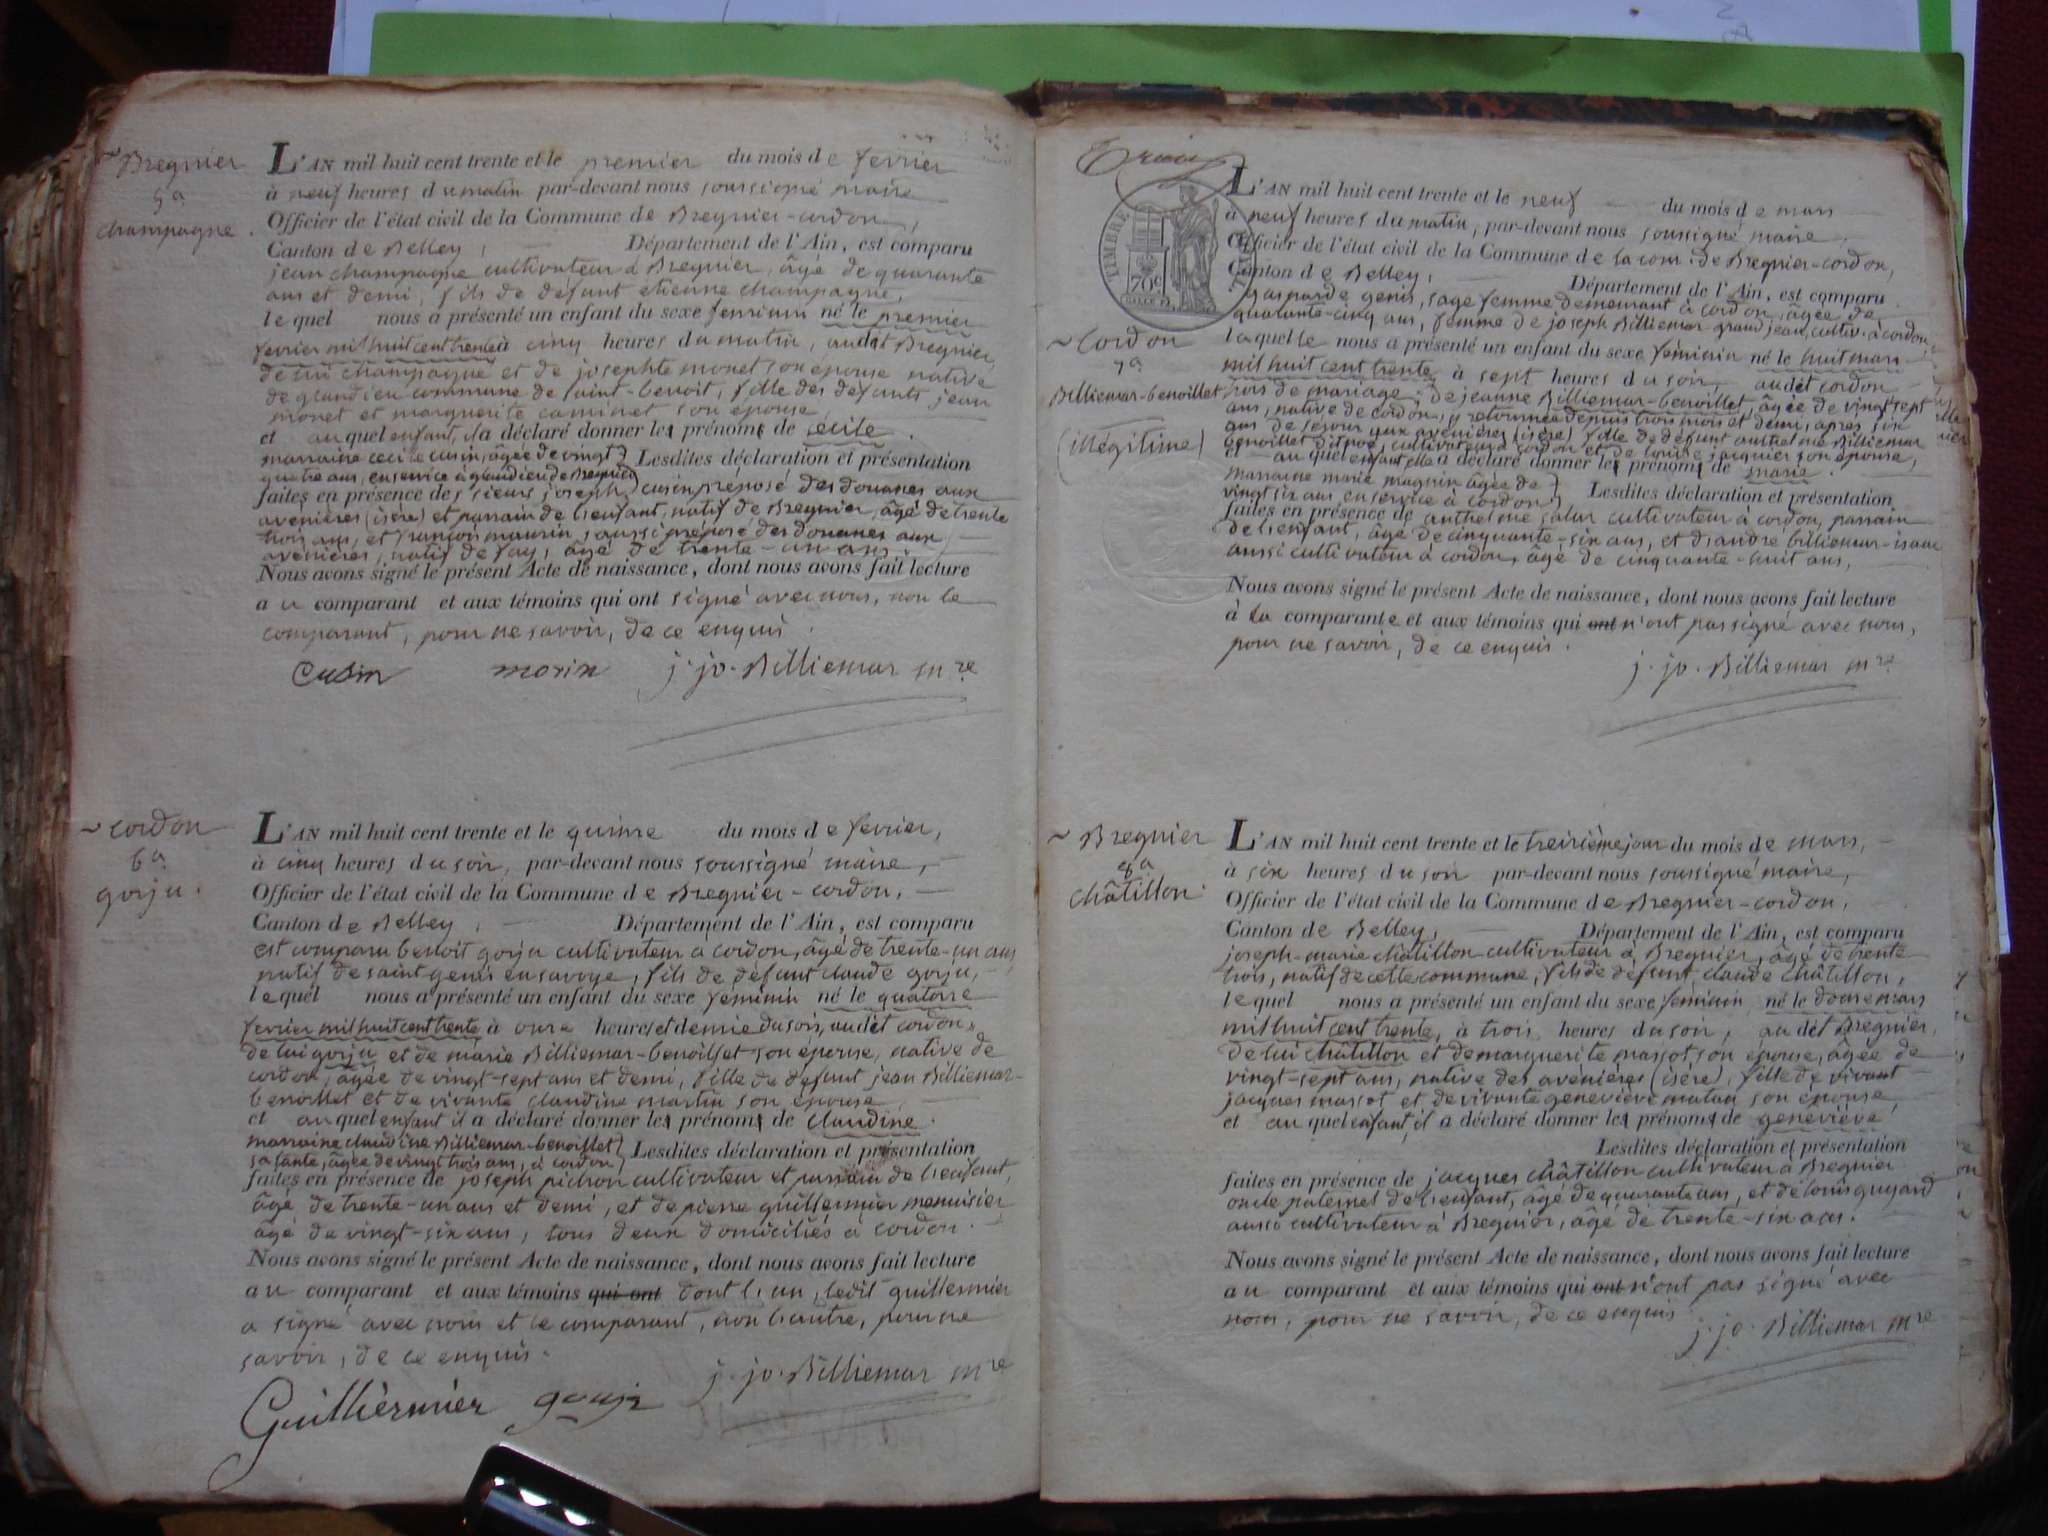 Bregnier
5a
champagne.
L'AN mil huit cent trente et le premier du mois de fevrier
à neuf heures du matin par-devant nous soussigné maire
Officier de l'état civil de la Commune de Bregnier-cordon,
Canton de Belley, Département de l'Ain, est comparu
jean champagne cultivateur à Bregnier, âgé de quarante
ans et demi, fils de défunt etienne champagne,
lequel nous a présenté un enfant du sexe feminin né le premier
fevrier mil huit cent trente à cinq heures du matin, audit Bregnier,
de lui champagne et de josephte monet son épouse native
de glandieu commune de saint-benoit, fille des défunts jean
monet et marguerite caminet son épouse,
et auquel enfant, il a déclaré donner les prénoms de cecile.
marraine cecile cusin, âgée de vingt
quatre ans, en service à glandieu de Bregnier
Lesdites déclaration et présentation
faites en présence des sieurs joseph cusin preposé des douanes aux
avenières (isère) et parrain de l'enfant, natif de Bregnier, âgé de trente
trois ans, et françois maurin, aussi préposé des douanes aux
avenières, natif de fay, âgé de trente-un ans.
Nous avons signé le présent Acte de naissance, dont nous avons fait lecture
au comparant et aux témoins qui ont signé avec nous, non le
comparant, pour ne savoir, de ce enquis.
Cusin morin j. jo. Billiemar mre
~ cordon
6a
gorju.
L'AN mil huit cent trente et le quinze du mois de fevrier,
à cinq heures du soir, par-devant nous soussigné maire,
Officier de l'état civil de la Commune de Bregnier-cordon,
Canton de Belley, Département de l'Ain, est comparu
est comparu benoit gorju cultivateur à cordon, âgé de trente-un ans
natif de saint genis en savoye, fils de défunt claude gorju,
lequel nous a présenté un enfant du sexe feminin né le quatorze
fevrier mil huit cent trente à onze heures et demie du soir, audit cordon,
de lui gorju et de marie Billiemar-benoillet son épouse, native de
cordon, âgée de vingt-sept ans et demi, fille de defunt jean Billiemar-
benoillet et de vivante claudine martin son épouse
et auquel enfant il a déclaré donner les prénoms de claudine.
marraine claudine Billiemar-benoillet
sa tante, âgée de vingt trois ans, à cordon
Lesdites déclaration et présentation
faites en présence de joseph pichon cultivateur et parrain de l'enfant,
âgé de trente-un ans et demi, et de pierre guillermier menuisier
âgé de vingt-six ans, tous deux domiciliés à cordon.
Nous avons signé le présent Acte de naissance, dont nous avons fait lecture
au comparant et aux témoins qui ont dont l'un, ledit guillermier
a signé avec nous et le comparant, non l'autre, pour ne
savoir, de ce enquis.
j. jo. Billiemar mre
Guillièrmièr gouju
Trois
TIMBRE
70c
L'AN mil huit cent trente et le neuf du mois de mars
à neuf heures du matin, par-devant nous soussigné maire,
Officier de l'état civil de la Commune de la com. de Bregnier-cordon,
Canton de Belley, Département de l'Ain, est comparu
gasparde genin, sage femme demeurant à cordon, âgée de
quarante-cinq ans, femme de joseph Billiemar grand jean, cultiv. à cordon,
~ Cordon
7a
Billiemar-benoillet
(illégitime)
laquelle nous a présenté un enfant du sexe féminin né le huit mars
mil huit cent trente à sept heures du soir, audit cordon
hors de mariage, de jeanne Billiemar-benoillet âgée de vingt sept
ans, native de cordon, y retournée depuis trois mois et demi, après six
ans de sejour aux avenières (isère) fille de défunt anthelme Billiemar
benoillet cultivateur à cordon et de louise jacquier son épouse,
et auquel enfant elle a déclaré donner les prénoms de marie.
marraine marie maguin âgée de
vingt six ans en service à cordon
Lesdites déclaration et présentation
faites en présence de anthelme salar cultivateur à cordon, parrain
de l'enfant, âgé de cinquante-six ans, et d'andre billiemar-isaac
aussi cultivateur à cordon, âgé de cinquante-huit ans,
Nous avons signé le présent Acte de naissance, dont nous avons fait lecture
à la comparante et aux témoins qui ont n'ont pas signé avec nous,
pour ne savoir, de ce enquis.
j. jo. Billiemar mre
~ Bregnier
8a
châtillon.
L'AN mil huit cent trente et le treizième jour du mois de mars,
à six heures du soir par-devant nous soussigné maire,
Officier de l'état civil de la Commune de Bregnier-cordon,
Canton de Belley, Département de l'Ain, est comparu
joseph-marie châtillon cultivateur à Bregnier, âgé de trente
trois, natif de cette commune, fils de défunt claude châtillon,
lequel nous a présenté un enfant du sexe feminin né le douze mars
mil huit cent trente, à trois heures du soir, audit Bregnier,
de lui châtillon et de marguerite massot, son épouse, âgée de
vingt-sept ans, native des avénières (isére), fille de vivant
jacques massot et de vivante geneviève son épouse,
et auquel enfant, il a déclaré donner les prénoms de geneviève
Lesdites déclaration et présentation
faites en présence de jacques châtillon cultivateur à Bregnier
oncle paternel de l'enfant, âgé de quarante ans, et de louis guyard
aussi cultivateur à Bregnier, âgé de trente-six ans.
Nous avons signé le présent Acte de naissance, dont nous avons fait lecture
au comparant et aux témoins qui ont n'ont pas signé avec
nous, pour ne savoir, de ce enquis
j. jo. Billiemar mre